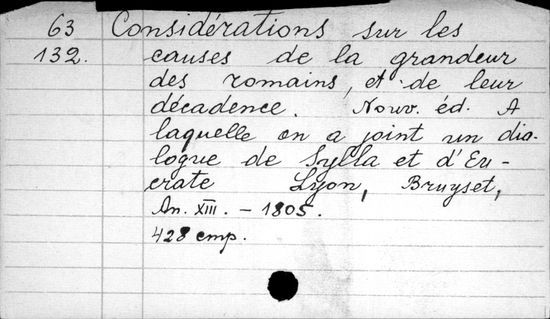 63 Considérations sur les
132. causes de la grandeur
des romains, et de leur
décadence. Nouv. éd. A
laquelle on a joint un dia-
logue de Sylla et d'Eu-
crate Lyon, Bruyset,
An. XIII. - 1805.
428 стр.